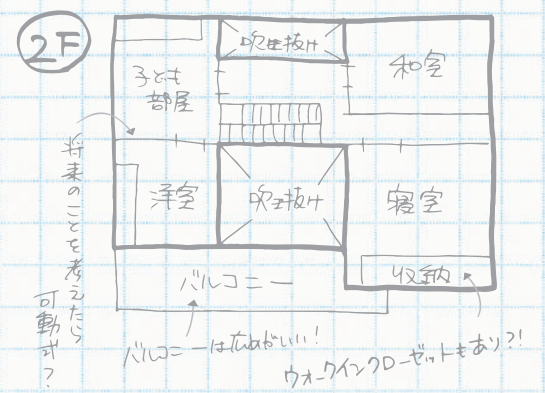 2F
吹き抜け
和室
子ども
部屋
洋室
吹き抜け
寝室
収納
バルコニー
将来のことを考えたら
可動式?
バルコニーは広めがいい!
ウォークインクローゼットもあり?!